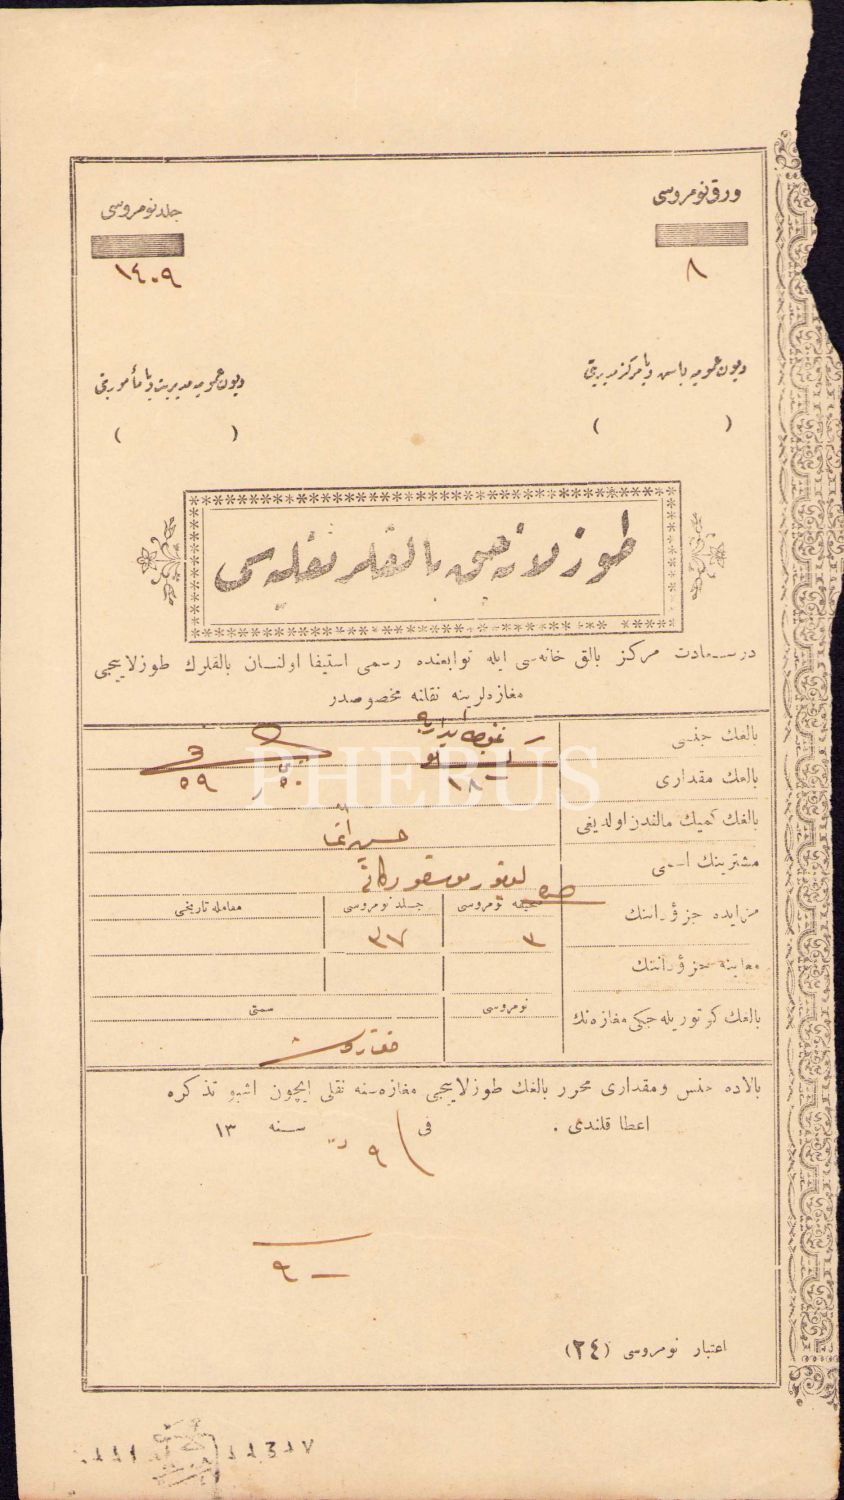 ورق نومروسی
جلد نومروسی
٨
١٤٠٩
دیون عمومیه باش ویا مرکز مدیریتی
دیون عمومیه مدیریت ویا مأموریتی
( )
( )
طوزلانه‌جق بالقلر نقلیه‌سی
درسعادت مرکز بالق خانه‌سی ایله توابعنده رسمی استیفا اولنسان بالقلرك طوزلاییجی
مغازه‌لرینه نقلنه مخصوصدر
بالغك جنسی
بالغك مقداری
١٨ ٥٠ ٥٩
بالغك کمیك مالندن اولدیغی
حسن آغا
مشترینك اسمی
مزایده جزؤداننك
صحیفه نومروسی
جلد نومروسی
معامله تاریخی
٣
٣٧
معاینه جزؤداننك
بالغك کوتوریله‌جکی مغازه‌نك
نومروسی
سمتی
PHEBUS
بالاده جنس ومقداری محرر بالغك طوزلاییجی مغازه‌سنه نقلی ایچون اشبو تذکره
اعطا قلندی .
فی ٩ سنه ١٣
٩
اعتبار نومروسی (٢٤)